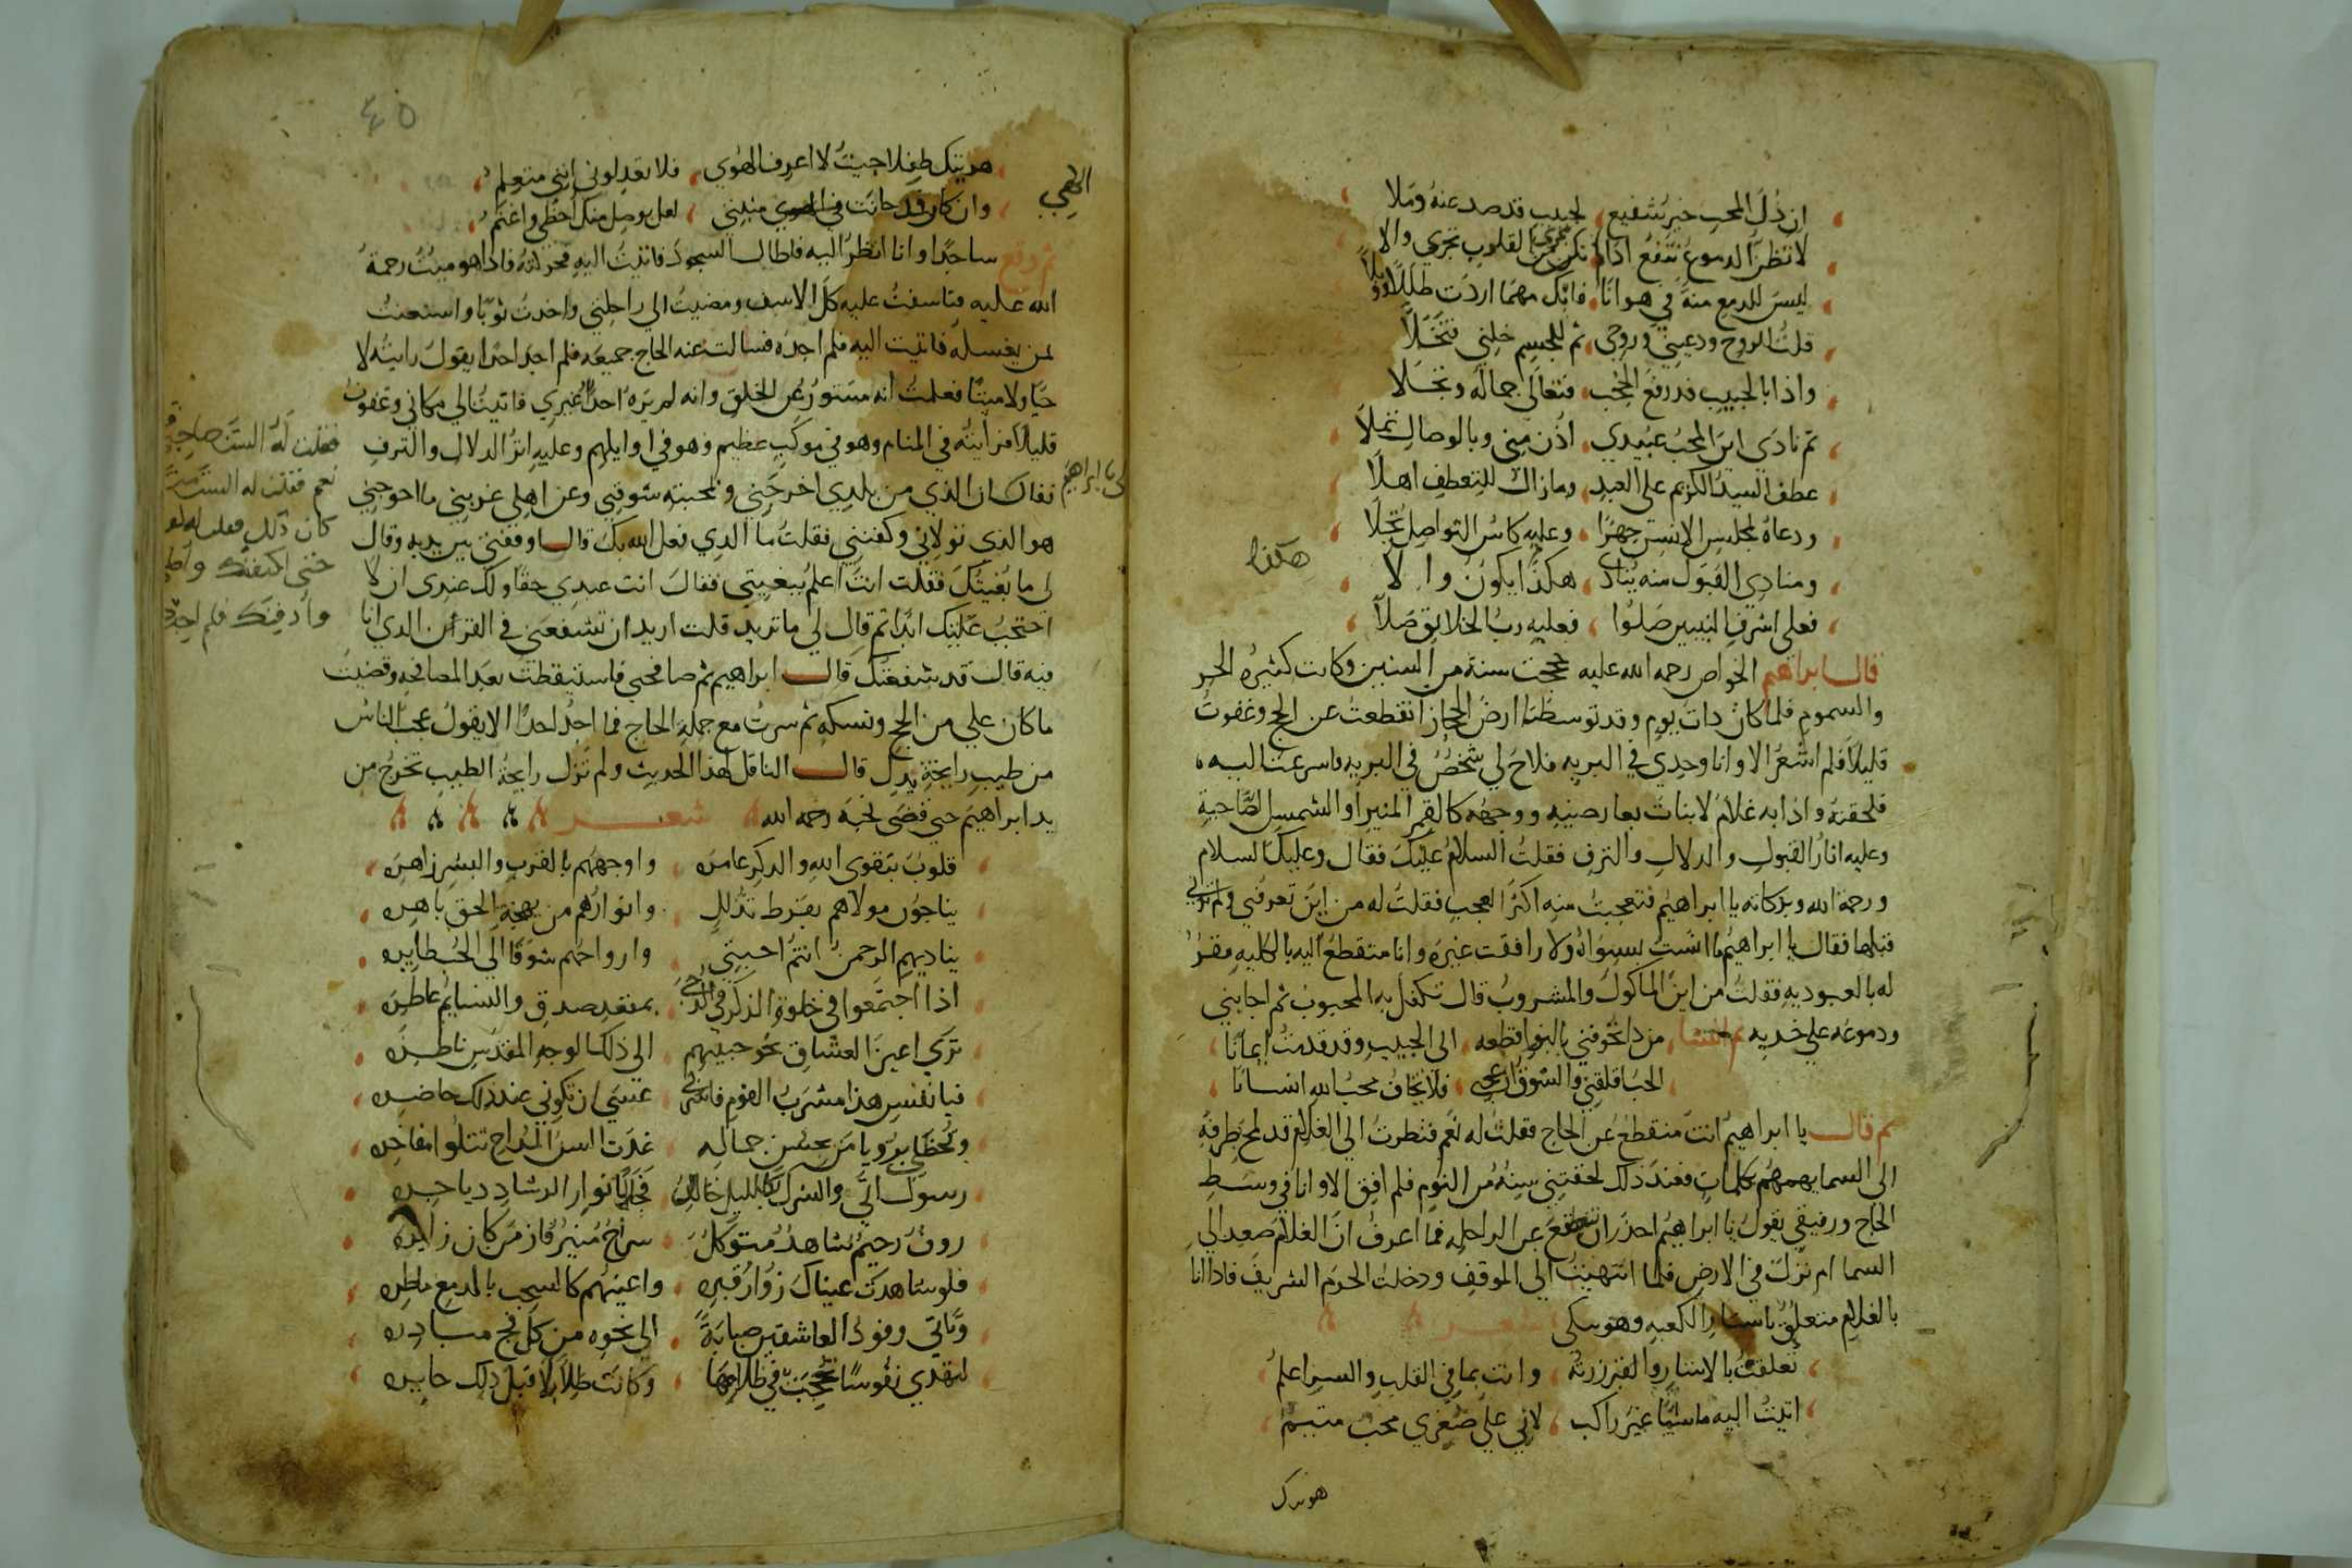 ان ذل المحب خير شفيع لحبيب قد صد عنه وملا
لا تظن الدموع تنفع اذا لم تكن من القلوب تجري والا
ليس للدمع منة في هوانا فابك مهما اردت طلا ووبلا
قلت للروح ودعيني وروحي ثم للجسم خلني فتخلا
واذا بالحبيب قد رفع الحجب فتعالى جماله وتجلا
ثم نادى اين المحب عبيدي اذن مني وبالوصال تملا
عطف السيد الكريم على العبد وما زال للتعطف اهلا
ودعاه لمجلس الانس جهرا وعليه كاس التواصل تجلا
ومنادي القبول منه ينادي هكذا يكون والا لا
هكذا
فعلى اشرف النبيين صلوا فعليه رب الخلائق صلا
قال ابراهيم الخواص رحمه الله عليه حججت سنة من السنين وكانت كثيرة الحر
والسموم فلما كان ذات يوم وقد توسطنا ارض الحجاز انقطعت عن الحج وغفوت
قليلا فلم اشعر الا وانا وحدي في البريه فلاح لي شخص في البريه فاسرعت اليه
فلحقته واذا به غلام لا نبات بعارضيه ووجهه كالقمر المنير او الشمس الضاحية
وعليه اثار القبول والدلال والترف فقلت السلام عليك فقال وعليك السلام
ورحمة الله وبركاته يا ابراهيم فتعجبت منه اكثر العجب فقلت له من اين تعرفني ولم ترني
قبلها فقال يا ابراهيم ما انست بسواه ولا رافقت غيره وانا منقطع اليه بالكليه مقر
له بالعبوديه فقلت من اين الماكول والمشروب قال تكفل به المحبوب ثم اجابني
ودموعه على خديه ثم انشا من ذا يخوفني بالبر اقطعه الى الحبيب وقد قدمت ايمانا
الحب اقلقني والشوق ازعجني فلا يخاف محب الله انسانا
ثم قال يا ابراهيم انت منقطع عن الحاج فقلت له نعم فنظرت الى الغلام قد لمح بطرفه
الى السما يهمهم بكلمات فعند ذلك لحقتني سنة من النوم فلم افق الا وانا في وسط
الحاج ورفيقي يقول يا ابراهيم احذر ان تقع عن الراحله فما اعرف ان الغلام صعد الى
السما ام نزل في الارض فلما انتهيت الى الموقف ودخلت الحرم الشريف فاذا انا
بالغلام متعلق باستار الكعبه وهو يبكي شعر
تعلقت بالاستار والقبر زرته وانت بما في القلب والسر اعلم
اتيت اليه ماشيا غير راكب لاني على صغري محب متيم
هويتك
٤٥
هويتك طفلا حيث لا اعرف الهوي فلا تعدلوني انني متعلم
وان كان قد حانت في الهوي منيتي لعل بوصل منك احظى واغنم
الهي
ثم وقع ساجدا وانا انظر اليه فاطال السجود فاتيت اليه فحركته فاذا هو ميت رحمة
الله عليه فتاسفت عليه كل الاسف ومضيت الى راحلتي واخدت ثوبا واستعنت
لمن يغسله فاتيت اليه فلم اجده فسالت عنه الحاج جميعه فلم اجد احدا يقول رايته لا
حيا ولا ميتا فعلمت انه مستور عن الخلق وانه لم يره احدا غيري فاتيت الي مكاني وغفوت
قليلا فرايته في المنام وهو في موكب عظيم وهو في اوايلهم وعليه اثر الدلال والترف
فقال ان الذي من بلدي اخرجني ولمحبته شوقني وعن اهلي غربني ما احوجني
لي يا ابراهيم
فقلت له الست صاحبي
نعم فقلت له الست مت
كان ذلك فقلت له
حتى اكفنك
وادفنك فلم اجدك
هو الذي تولاني وكفنني فقلت ما الذي فعل الله بك قال اوقفني بين يديه وقال
لى ما بغيتك فقلت انت اعلم ببغيتي فقال انت عبدي حقا ولك عندى ان لا
احتجب عليك ابدا ثم قال لي ما تريد قلت اريد ان تشفعني في القرن الذي انا
فيه قال قد شفعتك قال ابراهيم ثم صافحني فاستيقظت بعد المصافحه وقضيت
ما كان علي من الحج ونسكه ثم سرت مع جملة الحاج فما احد احدا الا يقول عجب الناس
من طيب رايحة يدك قال الناقل لهذا الحديث ولم تزل رايحة الطيب تخرج من
يد ابراهيم حتي قضى نحبه رحمه الله شعر
قلوب بتقوى الله والذكر عامره واوجههم بالقرب والبشر زاهره
يناجون مولاهم بفرط تذلل وانوارهم من بهجة الحق باهره
يناديهم الرحمن انتم احبتي وارواحهم شوقا الى الحب طايره
اذا اجتمعوا في خلوة الذكر في الدجى بمقعد صدق والنسايم عاطره
ترى اعين العشاق نحو حبيبهم الى ذلك الوجه المقدس ناظره
فيا نفس هذا مشرب القوم فاشربي عسى ان تكوني عند ذلك حاضره
وتحظي برويا من بحسن جماله غدت السن المداح تتلوا مفاخره
رسول اتى والشرك كالليل حالك فجلا بانوار الرشاد دياجره
روف رحيم شاهد متوكل سراج منير فاز من كان زايره
فلو شاهدت عيناك زوار قبره واعينهم كالسحب بالدمع ماطره
وتاتي وفود العاشقين صبابة الى نحوه من كل فج مبادره
لتهدي نفوسا تحجبت في ظلامها وكانت ظلالا قبل ذلك حايره